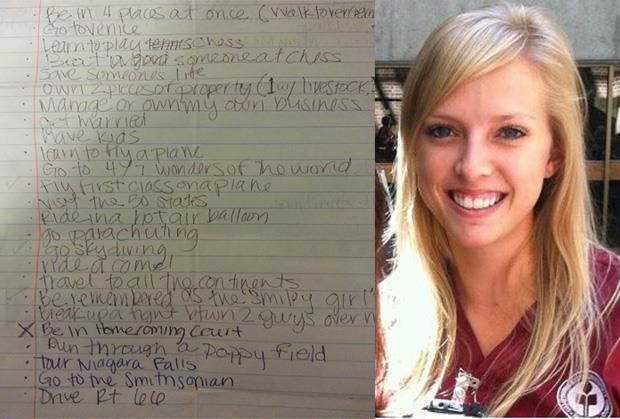 Be in 4 places at once (walk to remem
Go to Venice
Learn to play tennis chess
Beat a good someone at chess
Save someones life
own 2 pieces of property (1 w/ livestock
Manage or own my own business
Get married
Have kids
learn to fly a plane
Go to 4/7 wonders of the world
Fly first class on a plane
visit the 50 states
Ride in a hot air balloon
go parachuting
go skydiving
ride a camel
Travel to all the continents
Be remembered as the "smiley girl"
Break up a fight b/twn 2 guys over
X Be in Homecoming Court
Run through a poppy field
Tour Niagara Falls
Go to the Smithsonian
Drive Rt 66